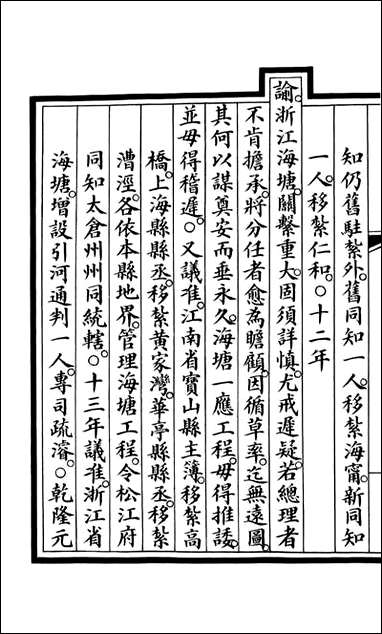 知仍舊駐紮外。舊同知一人。移紮海甯。新同知
一人。移紮仁和。○十二年
諭。浙江海塘。關繫重大。固須詳慎。尤戒遲疑。若總理者
不肯擔承。將分任者愈為瞻顧。因循草率。迄無遠圖。
其何以謀奠安而垂永久。海塘一應工程。毋得推諉。
並毋得稽遲。○又議准。江南省寶山縣主簿。移紮高
橋。上海縣縣丞。移紮黃家灣。華亭縣縣丞。移紮
漕涇。各依本縣地界。管理海塘工程。令松江府
同知太倉州州同統轄。○十三年議准。浙江省
海塘。增設引河通判一人。專司疏濬。○乾隆元